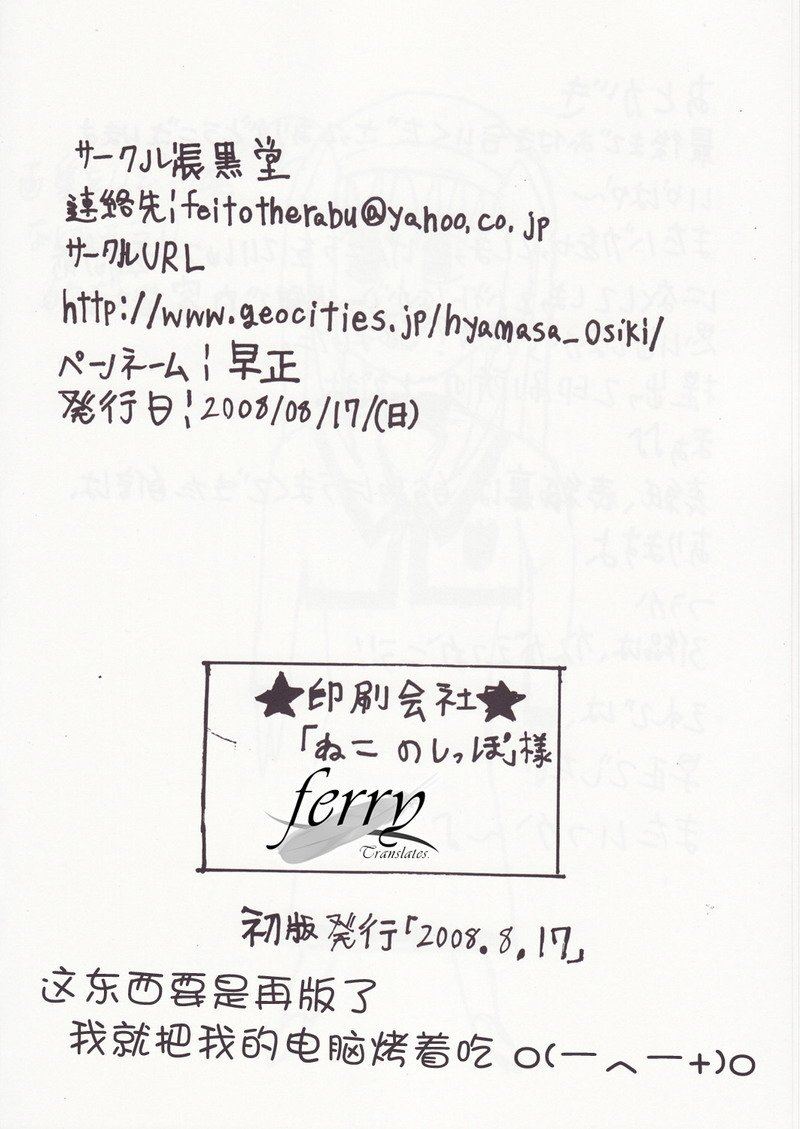 サークル張黒堂
連絡先:feitotherabu@yahoo.co.jp
サークルURL
http://www.geocities.jp/hyamasa_osiki/
ペンネーム:早正
発行日:2008/08/17/(日)
★印刷会社★
「ねこのしっぽ」様
ferry
Translates.
初版発行「2008.8.17」
这东西要是再版了
我就把我的电脑烤着吃 o(一へ一+)o